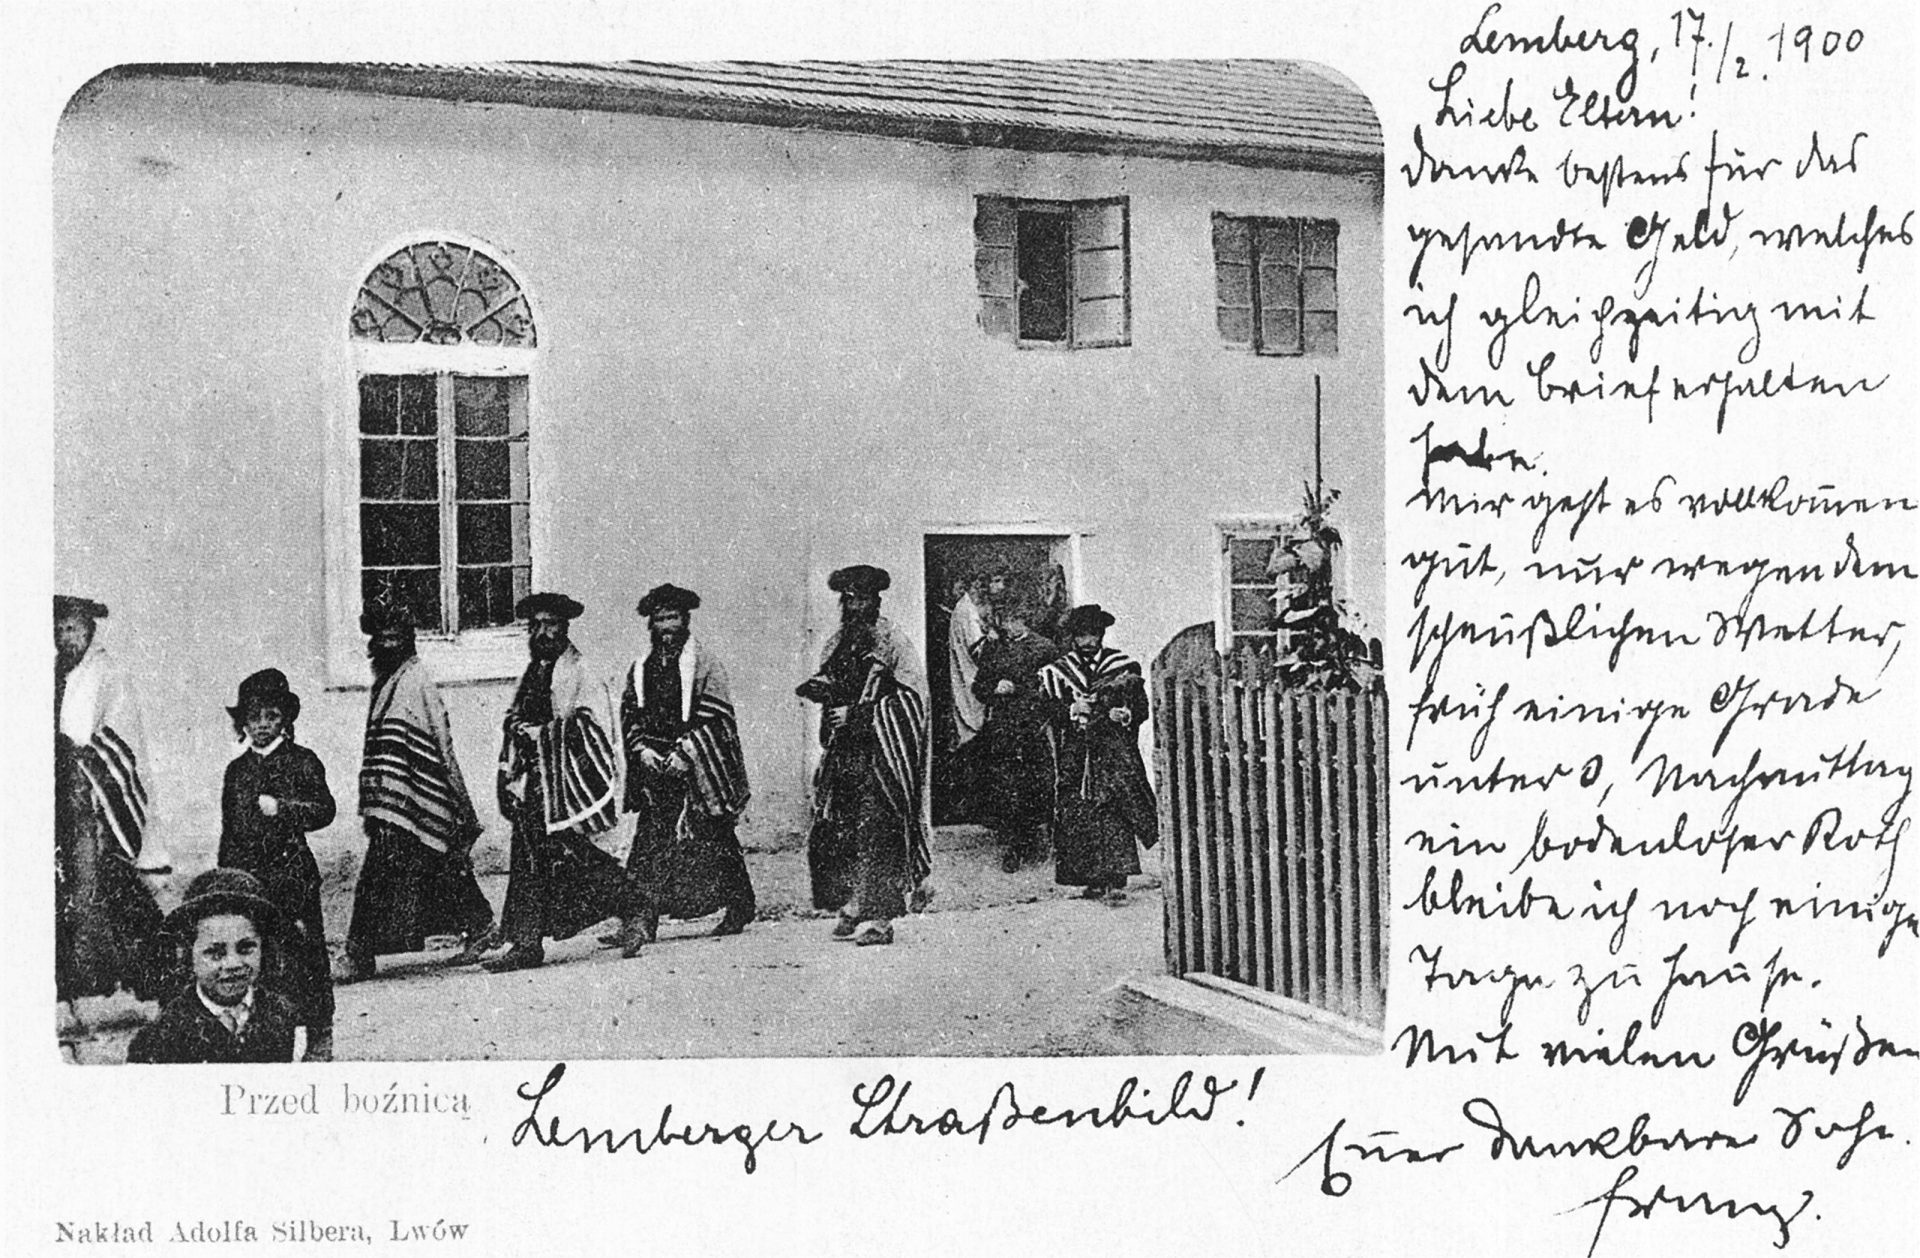 Lemberg, 17./2. 1900
Liebe Eltern!
danke bestens für das
gesandte Geld, welches
ich gleichzeitig mit
dem Brief erhalten
habe.
Mir geht es vollkom̅en
gut, nur wegen dem
scheußlichen Wetter,
früh einige Grade
unter 0, Nachmittag
ein bodenloser Koth
bleibe ich noch einige
Tage zu Hause.
Mit vielen Grüßen
Euer dankbarer Sohn.
Franz.
Przed boźnicą
Lemberger Straßenbild!
Nakład Adolfa Silbera, Lwów